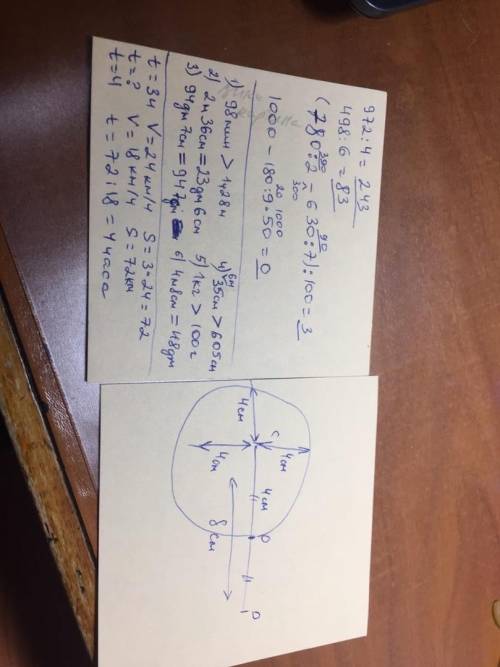 972:4 = 243
498:6 = 83
390 90
(780:2 - 630:7):100 = 3
300
20 1000
1000 - 180:9·50 = 0
1) 98мин > 1ч28м
2) 2м 36см = 23дм 6см
3) 94дм 7см = 947см
4) 6м 35см > 605см
5) 1кг > 100г
6) 4м8дм = 48дм
t = 3ч V = 24км/ч S = 3·24 = 72
t = ? V = 18км/ч S = 72км
t = 4 t = 72:18 = 4 часа
4см
C
4см
4см
4см
8см
O
D